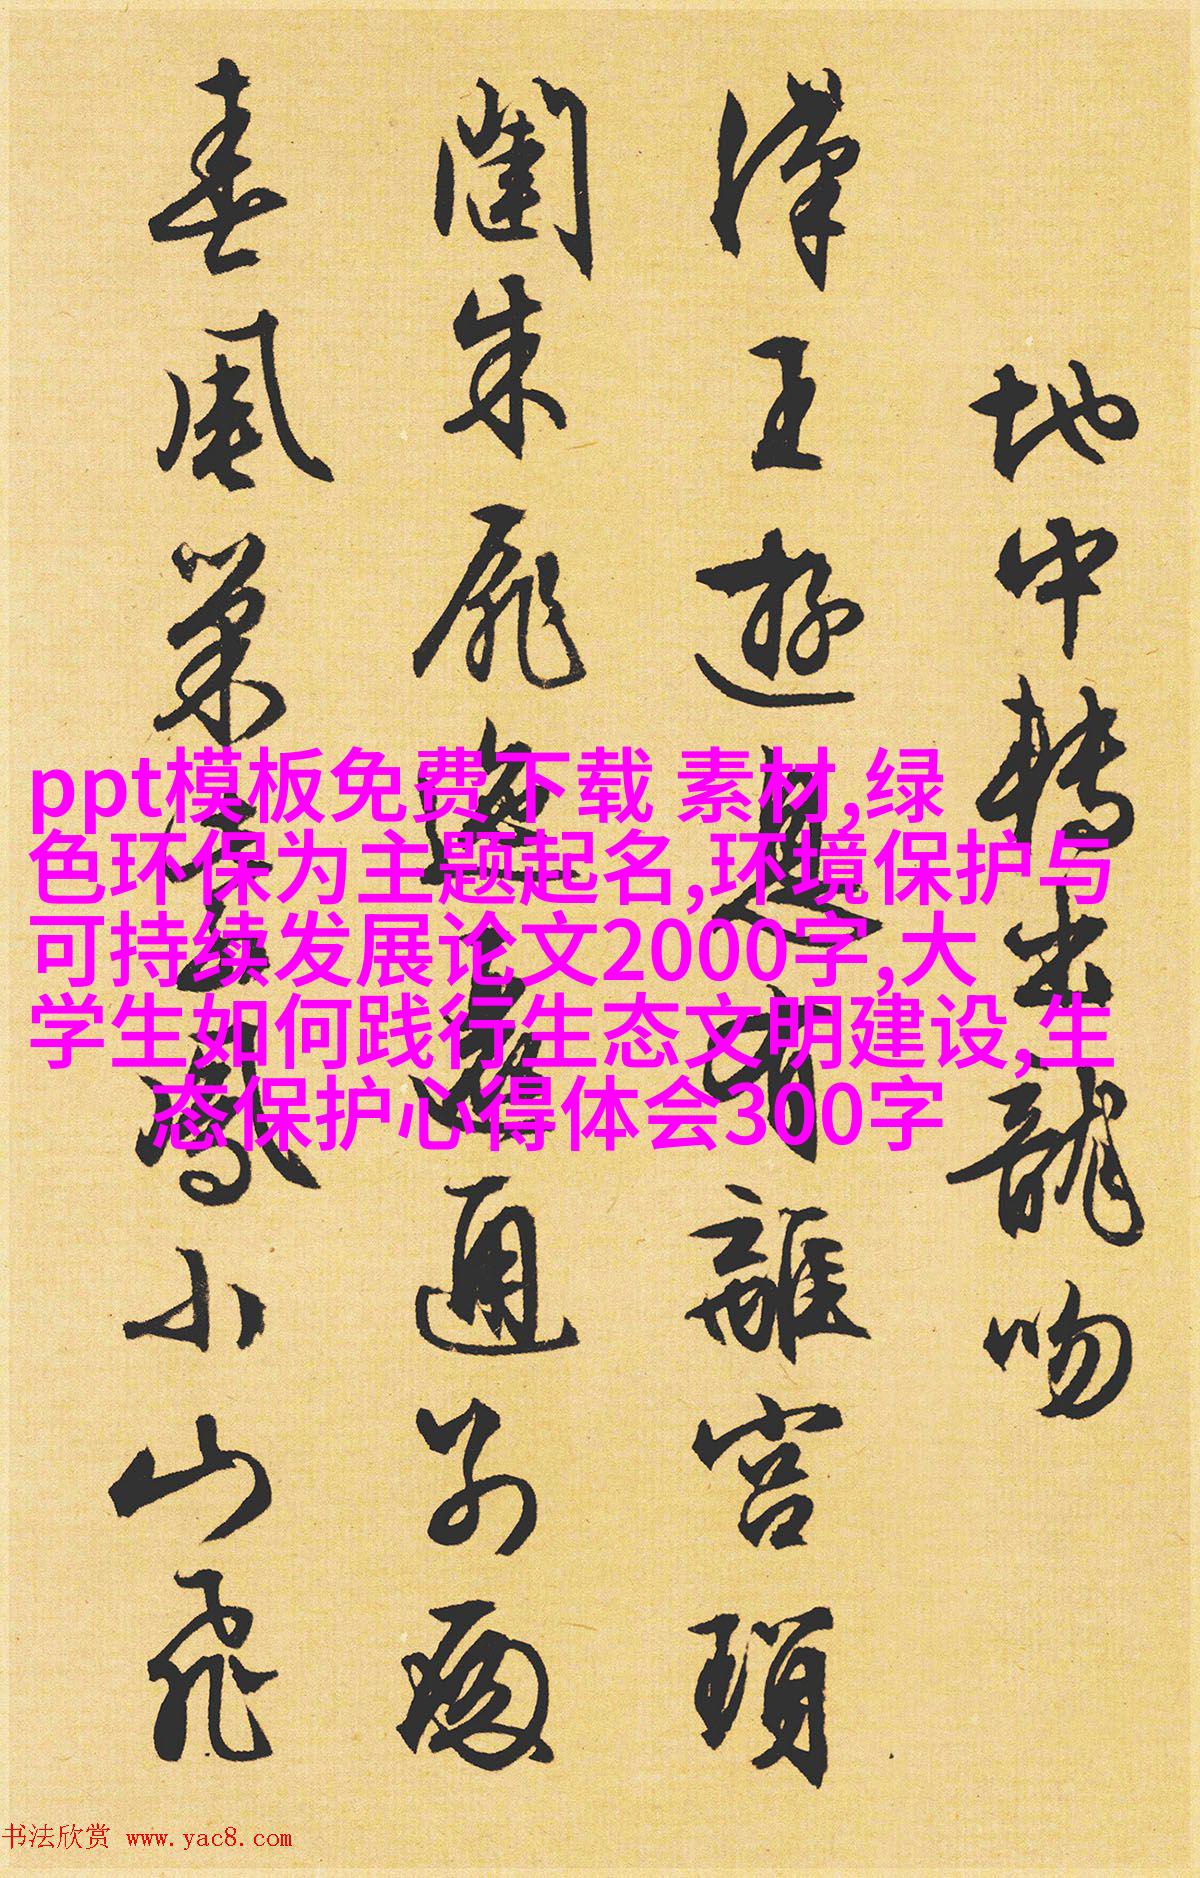 地中轉出龍吻
漢王遊息有離宮瑣
闥朱扉迤邐通別殿
春風巢紫鳳小山飛
ppt模板免费下载 素材,绿
色环保为主题起名,环境保护与
可持续发展论文2000字,大
学生如何践行生态文明建设,生
态保护心得体会300字
书法欣赏 www.yac8.com